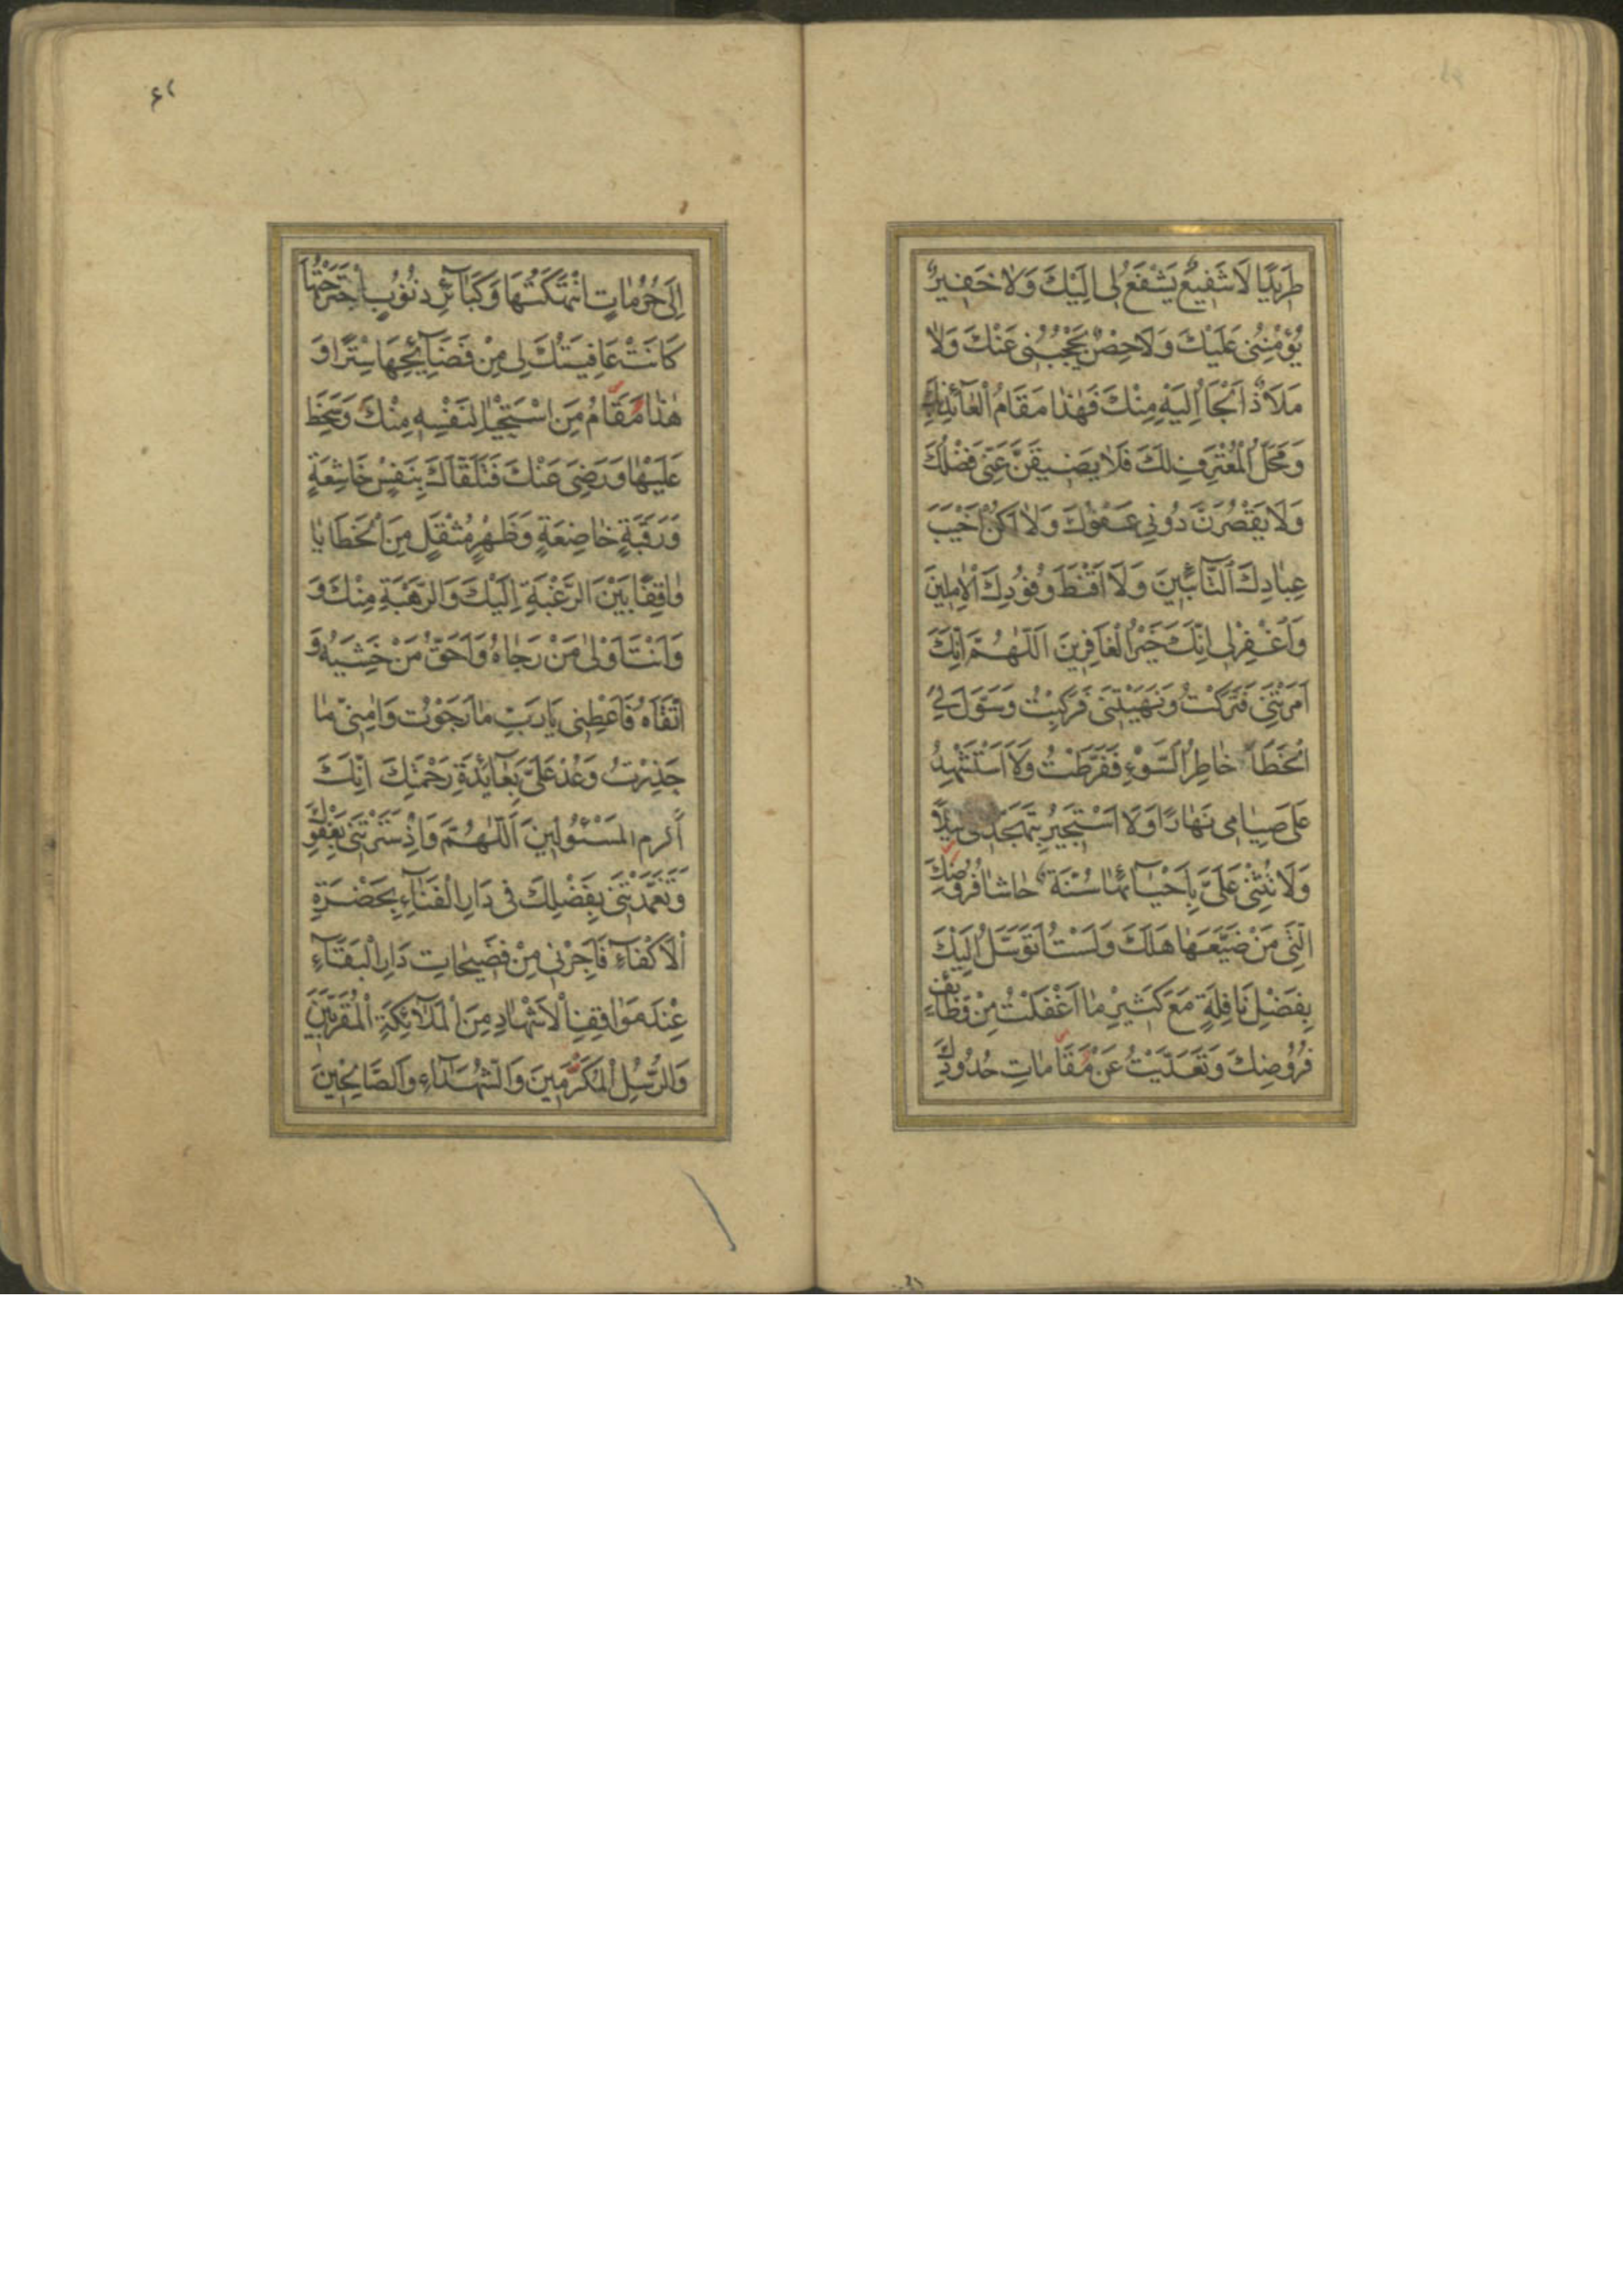 طَرِيدًا لَا شَفِيعٌ يَشْفَعُ لِي اِلَيْكَ وَلَا خَفِيرٌ
يُؤْمِنُنِي عَلَيْكَ وَلَا حِصْنٌ يَحْجُبُنِي عَنْكَ وَلَا
مَلَاذٌ اَلْجَأُ اِلَيْهِ مِنْكَ فَهٰذَا مَقَامُ الْعَآئِذِ بِكَ
وَمَحَلُّ الْمُعْتَرِفِ لَكَ فَلَا يَضِيقَنَّ عَنِّي فَضْلُكَ
وَلَا يَقْصُرَنَّ دُونِي عَفْوُكَ وَلَا اَكُنْ اَخْيَبَ
عِبَادِكَ التَّآئِبِينَ وَلَا اَقْنَطَ وُفُودِكَ الْاٰمِلِينَ
وَاغْفِرْ لِي اِنَّكَ خَيْرُ الْغَافِرِينَ اَللّٰهُمَّ اِنَّكَ
اَمَرْتَنِي فَتَرَكْتُ وَنَهَيْتَنِي فَرَكِبْتُ وَسَوَّلَ لِيَ
الْخَطَآءَ خَاطِرُ السُّوْءِ فَفَرَّطْتُ وَلَا اَسْتَشْهِدُ
عَلَى صِيَامِي نَهَارًا وَلَا اَسْتَجِيرُ بِتَهَجُّدِي لَيْلًا
وَلَا تُثْنِي عَلَيَّ بِاِحْيَآئِهَا سُنَّةٌ حَاشَا فُرُوضِكَ
الَّتِي مَنْ ضَيَّعَهَا هَلَكَ وَلَسْتُ اَتَوَسَّلُ اِلَيْكَ
بِفَضْلِ نَافِلَةٍ مَعَ كَثِيرِ مَا اَغْفَلْتُ مِنْ وَظَآئِفِ
فُرُوضِكَ وَتَعَدَّيْتُ عَنْ مَقَامَاتِ حُدُودِكَ
٤٢
اِلَى حُرُمَاتٍ انْتَهَكْتُهَا وَكَبَآئِرِ ذُنُوبٍ اجْتَرَحْتُهَا
كَانَتْ عَافِيَتُكَ لِي مِنْ فَضَآئِحِهَا سِتْرًا وَ
هٰذَا مَقَامُ مَنِ اسْتَحْيَا لِنَفْسِهِ مِنْكَ وَسَخِطَ
عَلَيْهَا وَرَضِيَ عَنْكَ فَتَلَقَّاكَ بِنَفْسٍ خَاشِعَةٍ
وَرَقَبَةٍ خَاضِعَةٍ وَظَهْرٍ مُثْقَلٍ مِنَ الْخَطَايَا
وَاقِفًا بَيْنَ الرَّغْبَةِ اِلَيْكَ وَالرَّهْبَةِ مِنْكَ وَ
وَاَنْتَ اَوْلَى مَنْ رَجَاهُ وَاَحَقُّ مَنْ خَشِيَهُ وَ
اتَّقَاهُ فَاَعْطِنِي يَا رَبِّ مَا رَجَوْتُ وَاٰمِنِّي مَا
حَذِرْتُ وَعُدْ عَلَيَّ بِعَآئِدَةِ رَحْمَتِكَ اِنَّكَ
اَكْرَمُ الْمَسْئُولِينَ اَللّٰهُمَّ وَاِذْ سَتَرْتَنِي بِعَفْوِكَ
وَتَغَمَّدْتَنِي بِفَضْلِكَ فِي دَارِ الْفَنَآءِ بِحَضْرَةِ
الْاَكْفَآءِ فَاَجِرْنِي مِنْ فَضِيحَاتِ دَارِ الْبَقَآءِ
عِنْدَ مَوَاقِفِ الْاَشْهَادِ مِنَ الْمَلَآئِكَةِ الْمُقَرَّبِينَ
وَالرُّسُلِ الْمُكَرَّمِينَ وَالشُّهَدَآءِ وَالصَّالِحِينَ